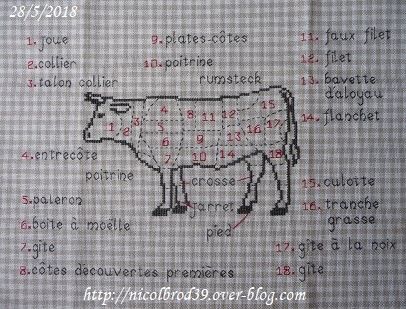 28/5/2018
1. joue
2. collier
3. talon collier
9. plates-côtes
10. poitrine
rumsteck
11. faux filet
12. filet
13. bavette
d'aloyau
14. flanchet
4. entrecôte
poitrine
5. paleron
6. boîte à moëlle
7. gîte
8. côtes découvertes premières
1 2 3 4 5 6 7 8 9 10 11 12 13 14 15 16 17 18
crosse
jarret
pied
15. culotte
16. tranche
grasse
17. gîte à la noix
18. gîte
http://nicolbrod39.over-blog.com